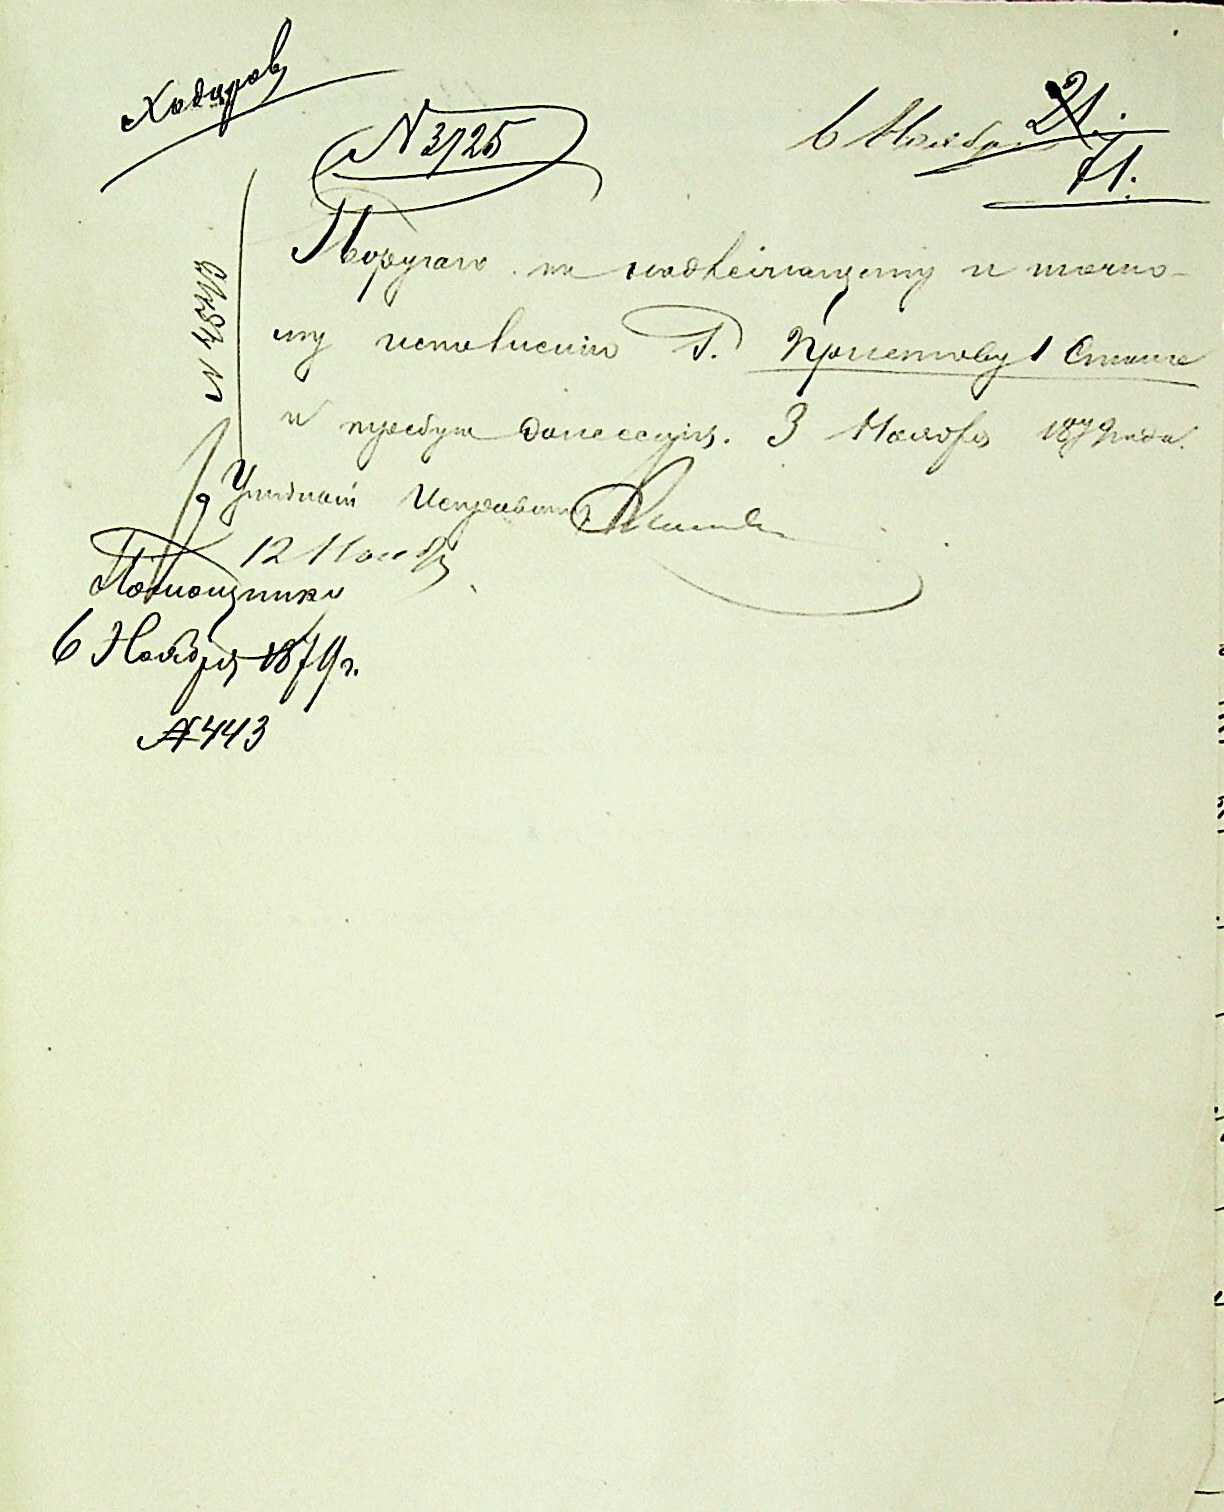 Ходыров
№ 3725
6 Ноября
21.
71.
Поручаю къ надлежащему и точно-
му исполненію Г. Приставу 1 Стана
и требую донесенія. 3 Ноября 1879 года.
Уѣздный Исправникъ
12 Ноября
Помощнику
6 Ноября 1879 г.
№ 443